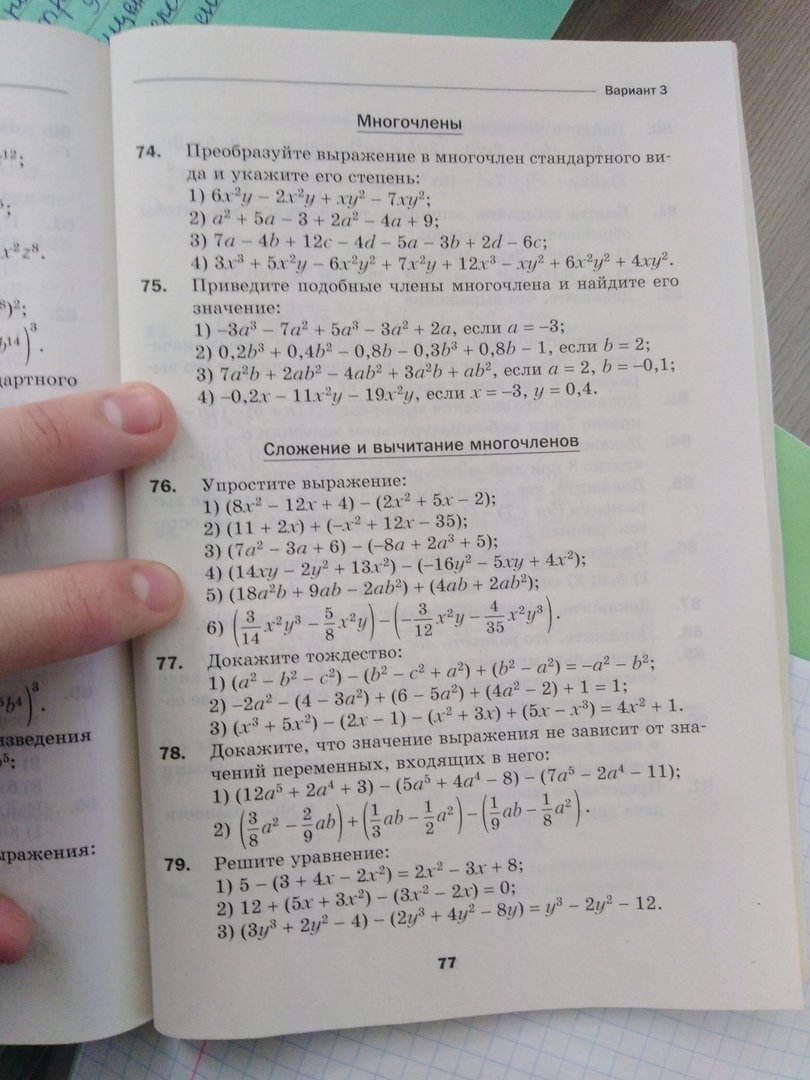 Вариант 3
Многочлены
74. Преобразуйте выражение в многочлен стандартного ви-
да и укажите его степень:
1) 6x²y − 2x²y + xy² − 7xy²;
2) a² + 5a − 3 + 2a² − 4a + 9;
3) 7a − 4b + 12c − 4d − 5a − 3b + 2d − 6c;
4) 3x³ + 5x²y − 6x²y² + 7x²y + 12x³ − xy² + 6x²y² + 4xy².
75. Приведите подобные члены многочлена и найдите его
значение:
1) −3a³ − 7a² + 5a³ − 3a² + 2a, если a = −3;
2) 0,2b³ + 0,4b² − 0,8b − 0,3b³ + 0,8b − 1, если b = 2;
3) 7a²b + 2ab² − 4ab² + 3a²b + ab², если a = 2, b = −0,1;
4) −0,2x − 11x²y − 19x²y, если x = −3, y = 0,4.
Сложение и вычитание многочленов
76. Упростите выражение:
1) (8x² − 12x + 4) − (2x² + 5x − 2);
2) (11 + 2x) + (−x² + 12x − 35);
3) (7a² − 3a + 6) − (−8a + 2a³ + 5);
4) (14xy − 2y² + 13x²) − (−16y² − 5xy + 4x²);
5) (18a²b + 9ab − 2ab²) + (4ab + 2ab²);
6) (3/14 x²y³ − 5/8 x²y) − (−3/12 x²y − 4/35 x²y³).
77. Докажите тождество:
1) (a² − b² − c²) − (b² − c² + a²) + (b² − a²) = −a² − b²;
2) −2a² − (4 − 3a²) + (6 − 5a²) + (4a² − 2) + 1 = 1;
3) (x³ + 5x²) − (2x − 1) − (x² + 3x) + (5x − x³) = 4x² + 1.
78. Докажите, что значение выражения не зависит от зна-
чений переменных, входящих в него:
1) (12a⁵ + 2a⁴ + 3) − (5a⁵ + 4a⁴ − 8) − (7a⁵ − 2a⁴ − 11);
2) (3/8 a² − 2/9 ab) + (1/3 ab − 1/2 a²) − (1/9 ab − 1/8 a²).
79. Решите уравнение:
1) 5 − (3 + 4x − 2x²) = 2x² − 3x + 8;
2) 12 + (5x + 3x²) − (3x² − 2x) = 0;
3) (3y³ + 2y² − 4) − (2y³ + 4y² − 8y) = y³ − 2y² − 12.
77